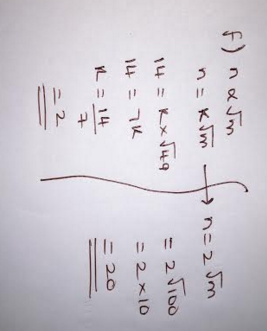 f) n α √m
n = k√m
14 = k × √49
14 = 7k
k = 14/7
= 2
n = 2√m
= 2√100
= 2 × 10
= 20